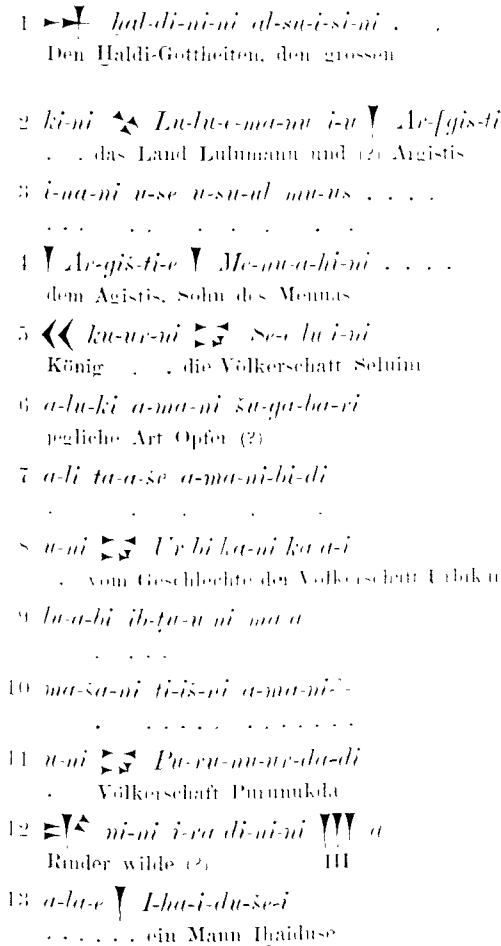 1 𒀭 ḫal-di-ni-ni al-su-i-si-ni . .
Den Ḫaldi-Gottheiten, den grossen
2 ki-ni 𒆳 Lu-lu-e-ma-nu i-u 𒁹 Ar-[gis-ti
. . das Land Lulumanu und (?) Argistis
3 i-na-ni u-se u-su-ul mu-us . . . .
. . . . . . . . . .
4 𒁹 Ar-giš-ti-e 𒁹 Me-nu-a-hi-ni . . . .
dem Agistis, Sohn des Menuas
5 𒌋𒌋 ku-ur-ni Se-e lu i-ni
König . . die Völkerschaft Seluini
6 a-lu-ki a-ma-ni šu-ga-ba-ri
jegliche Art Opfer (?)
7 a-li ta-a-še a-ma-ni-bi-di
. . . . .
8 u-ni Ur bi ka-ni ka a-i
. vom Geschlechte der Völkerschaft Urbika
9 lu-a-bi ib-ṭu-u ni ma a
. . . .
10 ma-ša-ni ti-iš-ni a-ma-ni-
. . . . . . . . . . . . .
11 u-ni Pu-ru-nu-ur-da-di
. Völkerschaft Purunukda
12 ni-ni i-ra di-ni-ni 𒐈 a
Rinder wilde (?) III
13 a-la-e 𒁹 I-ha-i-du-še-i
. . . . . . ein Mann Ihaiduse